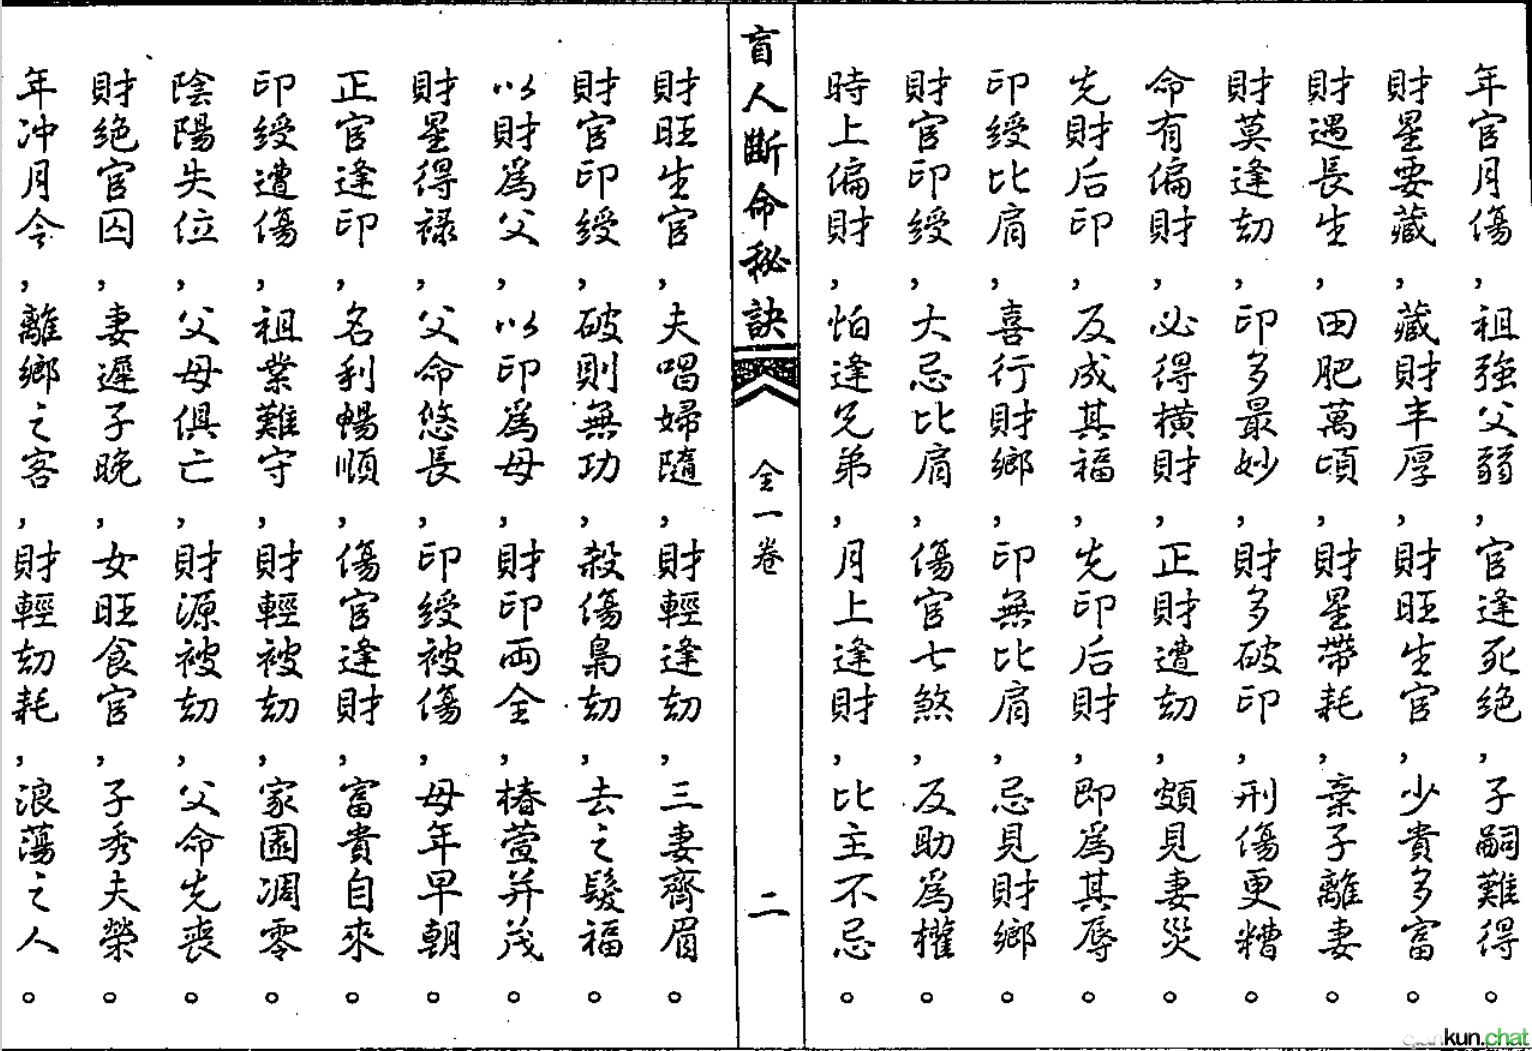 年官月傷，祖強父弱，官逢死绝，子嗣難得。
財星要藏，藏財丰厚，財旺生官，少貴多富。
財遇長生，田肥萬頃，財星帶耗，棄子離妻。
財莫逢劫，印多最妙，財多破印，刑傷更糟。
命有偏財，必得橫財，正財遭劫，頗見妻災。
先財后印，反成其福，先印后財，即爲其辱。
印綬比肩，喜行財鄉，印無比肩，忌見財鄉。
財官印綬，大忌比肩，傷官七煞，反助爲權。
時上偏財，怕逢兄弟，月上逢財，比主不忌。
盲人斷命秘訣
全一卷
二
財旺生官，夫唱婦隨，財輕逢劫，三妻齊眉。
財官印綬，破則無功，殺傷梟劫，去之髮福。
以財爲父，以印爲母，財印両全，椿萱并茂。
財星得禄，父命悠長，印綬被傷，母年早朝。
正官逢印，名利暢順，傷官逢財，富貴自來。
印綬遭傷，祖業難守，財輕被劫，家園凋零。
陰陽失位，父母俱亡，財源被劫，父命先丧。
財绝官囚，妻遲子晚，女旺食官，子秀夫榮。
年冲月令，離鄉之客，財輕劫耗，浪蕩之人。
qiankun.chat